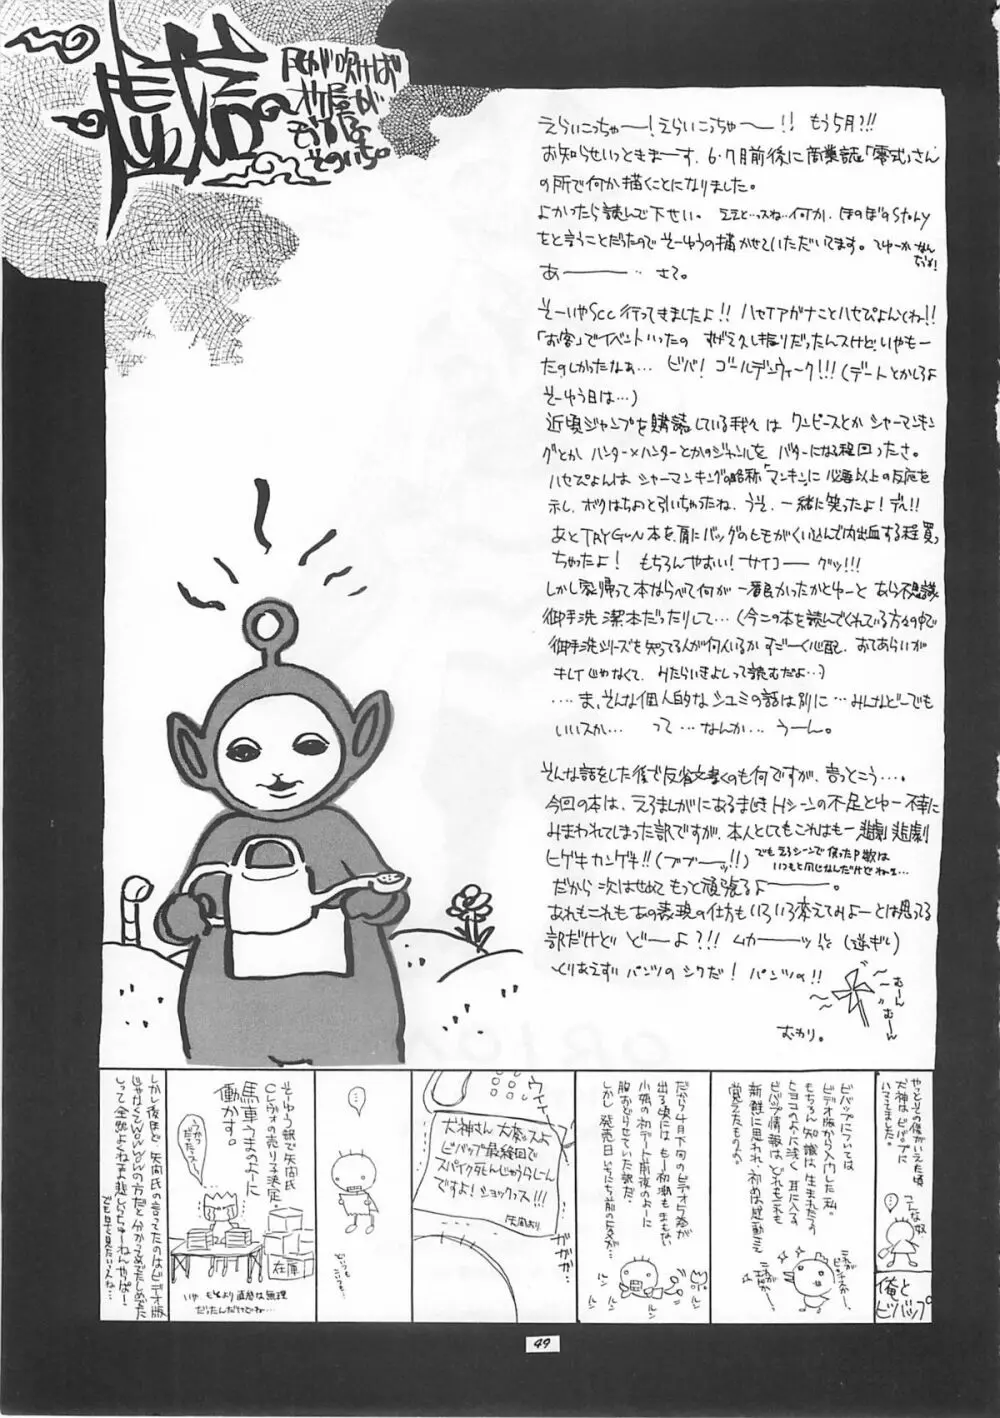 風が吹けば
オケ屋が
もうかる
そのいち。
えらいこっちゃー!えらいこっちゃー!! もう5月?!!
お知らせいっときまーす。6・7月前後に商業誌「零式」さん
の所で何か描くことになりました。
よかったら読んで下せい。ええと…っスね…何か、ほのぼのStory
をと言うことだったのでそーゆうの描かせていただいてます。
あーーー… さて。
そーいやSCC行ってきましたよ!!
「お客」でイベントいったの すげえ久し振りだったんスけど、いやもー
たのしかったなぁ… ビバ! ゴールデンウィーク!!!(デートとかしろよ
そーゆう日は…)
近頃ジャンプを購読している我々は ワンピースとか シャーマンキン
グとか ハンター×ハンターとかのジャンルを バターになる程回ったさ。
ハセぴょんはシャーマンキングの略称「マンキン」に必要以上の反応を
示し、ボクはちょと引いちゃったね、うそ、一緒に笑ったよ!
あとTRYGUN本を、肩にバッグのヒモがくい込んで内出血する程買っ
ちゃったよ! もちろんやおい! サイコー グッ!!!
しかし家帰って本ならべて何が一番良かったかとゆーと あら不思議
御手洗 潔本だったりして…(今この本を読んでくれている方々の中で
御手洗シリーズを知ってる人が何人いるか すごーく心配。おてあらいが
キレイじゃなくて、みたらいきよしって読むだよ…)
…ま、そんな個人的なシュミの話は別に…みんなどーでも
いいスか… って…なんか… うーん。
そんな話をした後で反省文書くのも何ですが、言っとこう…。
今回の本は、えろまんがにあるまじきHシーンの不足とゆー不幸に
みまわれてしまった訳ですが、本人としてもこれはもー悲劇悲劇
ヒゲキカンゲキ!!(ブブーッ!!)
でもえろシーンで使ったP数は
いつもと同じなんだけどねー…
だから 次はせめて もっと頑張るよーーー。
あれもこれも あの表現の仕方も いろいろ変えてみよーとは思ってる
訳だけど どーよ?!! ムカーッ (逆ギレ)
とりあえず パンツのシワだ! パンツの!!
むーん
むーん
おわり。
俺と
ビバップ
やっとその僕がいえた頃
犬神はビバップに
ハマってました。
ビバップについては
ビデオ版から入門した私。
もちろん知識は生まれたての
ヒヨコのように浅く 耳に入る
ビバップ情報は どれもこれも
新鮮に思われ、初めは感動ミラ
覚えたものよ。
だから4月下旬のビデオ5巻が
出る頃にはもー初潮もまもない
小娘の初デート前夜のように
胸おどらせていた訳だ。
しかし 発売日
ルン
ルン
ウィィー
犬神さん 大変ッスよ
ビバップ最終回で
スパイク死んじゃうらしーん
ですよ! ショックっス!!!
矢間より
ガガガ…
…
そーゆう訳で矢間氏
Cレヴォの売り子決定。
馬車うまのよーに
働かす。
在庫
いや もとより 直接は無理
だったんだけどねー…
しかし後ほど 矢間氏の言ってたのはビデオ版
じゃなくWOWOWの方だと分かる
49